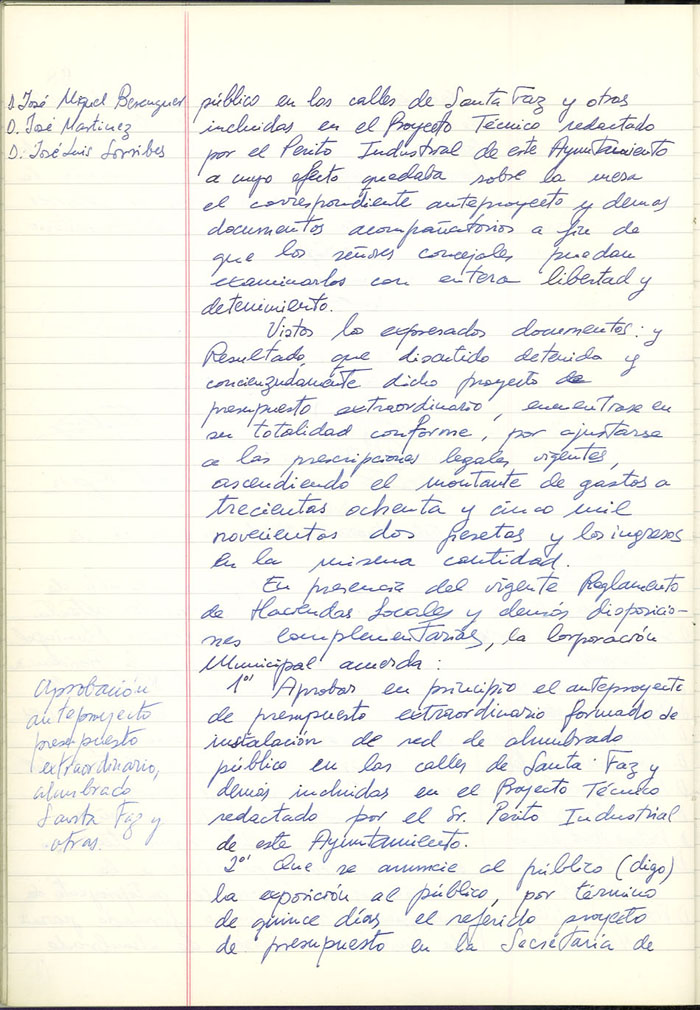 D. José Miguel Berenguer
D. José Martinez
D. José Luis Sorribes
público en las calles de Santa Faz y otras
incluidas en el Proyecto Técnico redactado
por el Perito Industrial de este Ayuntamiento
a cuyo efecto quedaba sobre la mesa
el correspondiente anteproyecto y demas
documentos acompañatorios a fin de
que los señores concejales puedan
examinarlos con entera libertad y
detenimiento.
Vistos los expresados documentos: y
Resultado, que discutido detenida y
concienzudamente dicho proyecto de
presupuesto extraordinario, encuentrase en
su totalidad conforme, por ajustarse
a las prescripciones legales vigentes,
ascendiendo el montante de gastos a
trecientas ochenta y cinco mil
novecientas dos pesetas y los ingresos
en la misma cantidad.
En presencia del vigente Reglamento
de Haciendas Locales y demás disposicio-
nes complementarias, la Corporación
Municipal acuerda:
1º Aprobar en principio el anteproyecto
de presupuesto extraordinario formado de
instalación de red de alumbrado
público en las calles de Santa Faz y
demas incluidas en el Proyecto Técnico
redactado por el Sr. Perito Industrial
de este Ayuntamiento.
2º Que se anuncie al público (digo)
la exposición al público, por término
de quince días el referido proyecto
de presupuesto en la Secretaría de
Aprobación
anteproyecto
presupuesto
extraordinario,
alumbrado
Santa Faz y
otras.